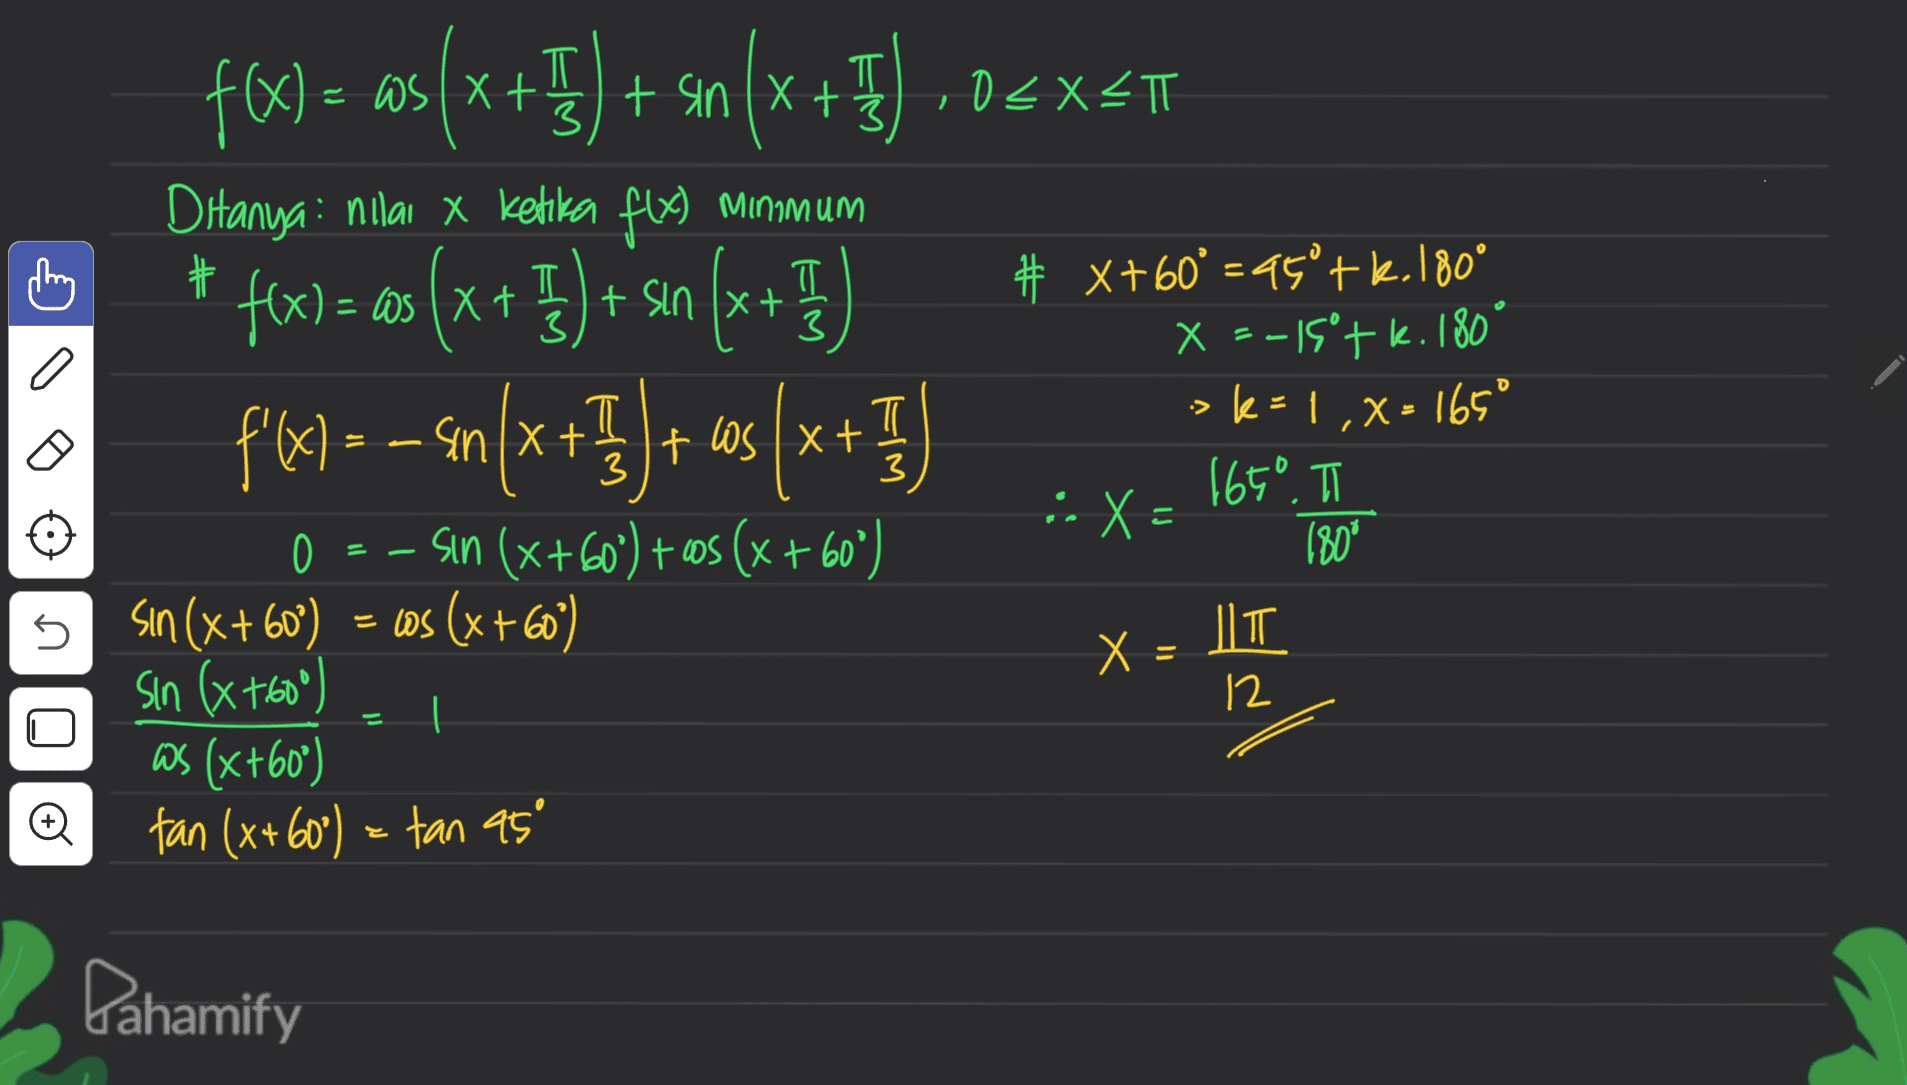 f(x) = cos (x + π/3) + sin (x + π/3) , 0 ≤ x ≤ π
Ditanya : nilai x ketika f(x) minimum
# f(x) = cos (x + π/3) + sin (x + π/3)
f'(x) = - sin (x + π/3) + cos (x + π/3)
0 = - sin (x + 60°) + cos (x + 60°)
sin (x + 60°) = cos (x + 60°)
sin (x + 60°) / cos (x + 60°) = 1
tan (x + 60°) = tan 45°
# x + 60° = 45° + k . 180°
x = -15° + k . 180°
> k = 1 , x = 165°
∴ x = 165° . π / 180°
x = 11π / 12
Pahamify